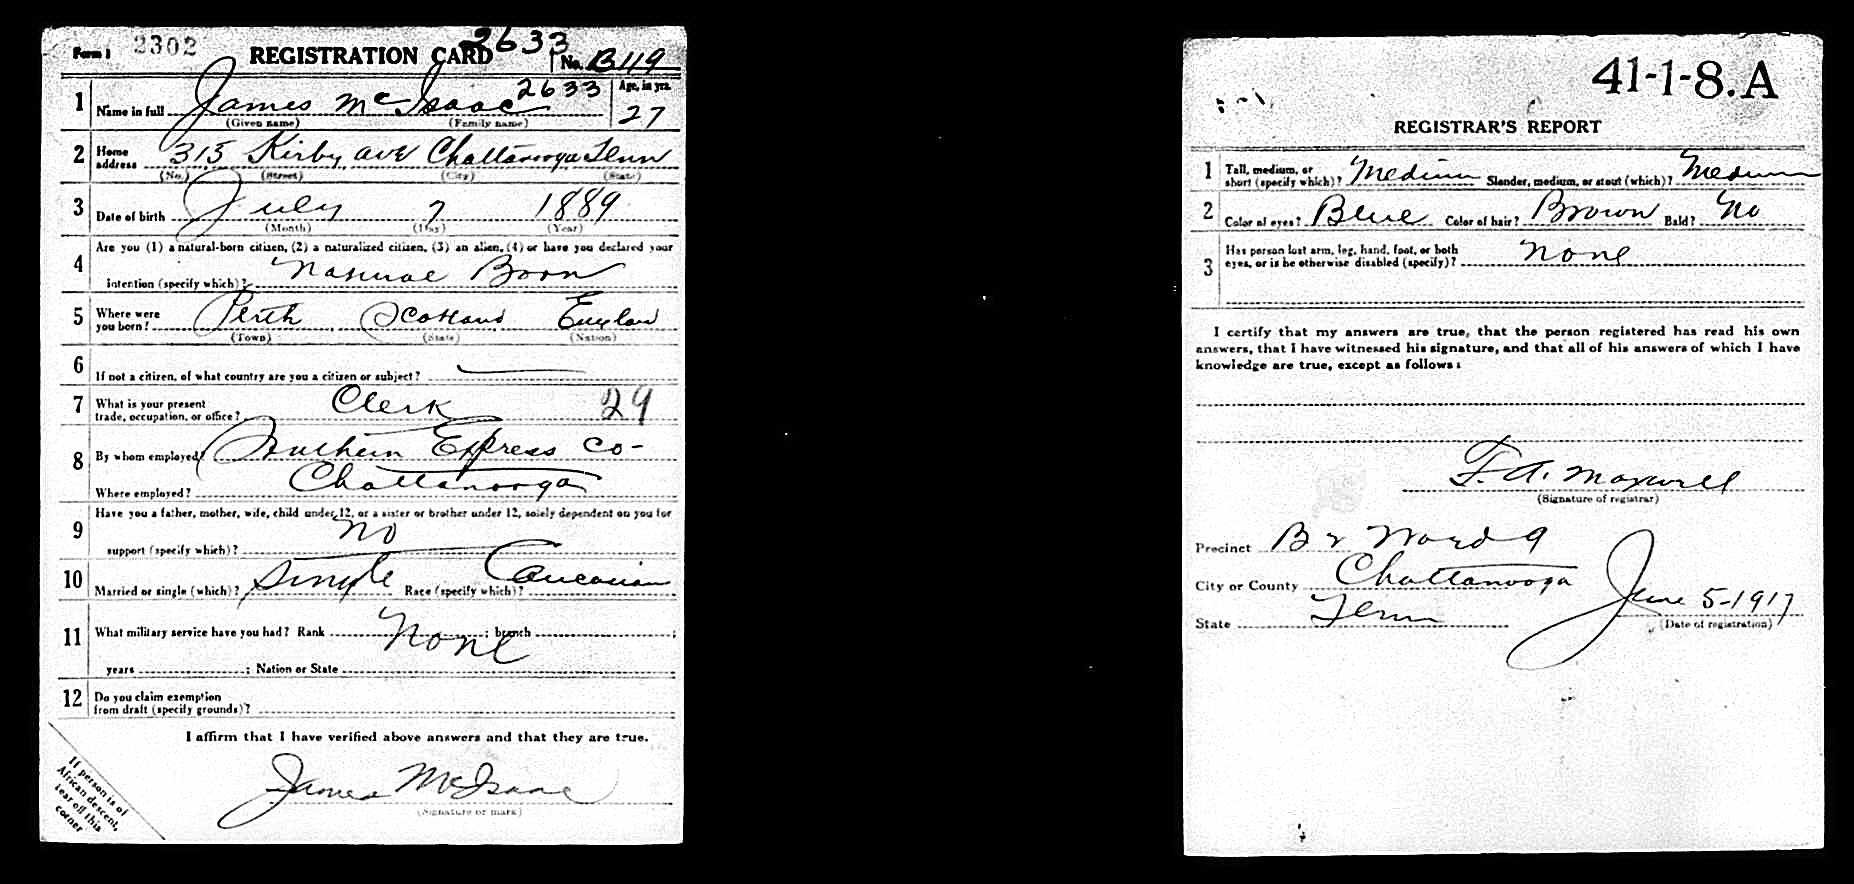 Form 1 2302 REGISTRATION CARD 2633 No. B119
1 Name in full James McIsaac 2633 Age, in yrs. 27
(Given name) (Family name)
2 Home address 315 Kirby ave Chattanooga Tenn
(No.) (Street) (City) (State)
3 Date of birth July 7 1889
(Month) (Day) (Year)
4 Are you (1) a natural-born citizen, (2) a naturalized citizen, (3) an alien, (4) or have you declared your
intention (specify which)? Born
5 Where were you born? Perth Scotland
(Town) (State) (Nation)
6 If not a citizen, of what country are you a citizen or subject?
7 What is your present trade, occupation, or office? Clerk 29
8 By whom employed? Southern Express Co-
Where employed? Chattanooga
9 Have you a father, mother, wife, child under 12, or a sister or brother under 12, solely dependent on you for
support (specify which)? No
10 Married or single (which)? Single Race (specify which)? Caucasian
11 What military service have you had? Rank None ; branch ;
years ; Nation or State
12 Do you claim exemption
from draft (specify grounds)?
I affirm that I have verified above answers and that they are true.
James McIsaac
(Signature or mark)
If person is of
African descent,
tear off this
corner
41-1-8.A
REGISTRAR'S REPORT
1 Tall, medium, or short (specify which)? Medium Slender, medium, or stout (which)? Medium
2 Color of eyes? Blue Color of hair? Brown Bald? No
3 Has person lost arm, leg, hand, foot, or both
eyes, or is he otherwise disabled (specify)? None
I certify that my answers are true, that the person registered has read his own
answers, that I have witnessed his signature, and that all of his answers of which I have
knowledge are true, except as follows:
F. A. Maxwell
(Signature of registrar)
Precinct Ward 9
City or County Chattanooga
State Tenn June 5-1917
(Date of registration)